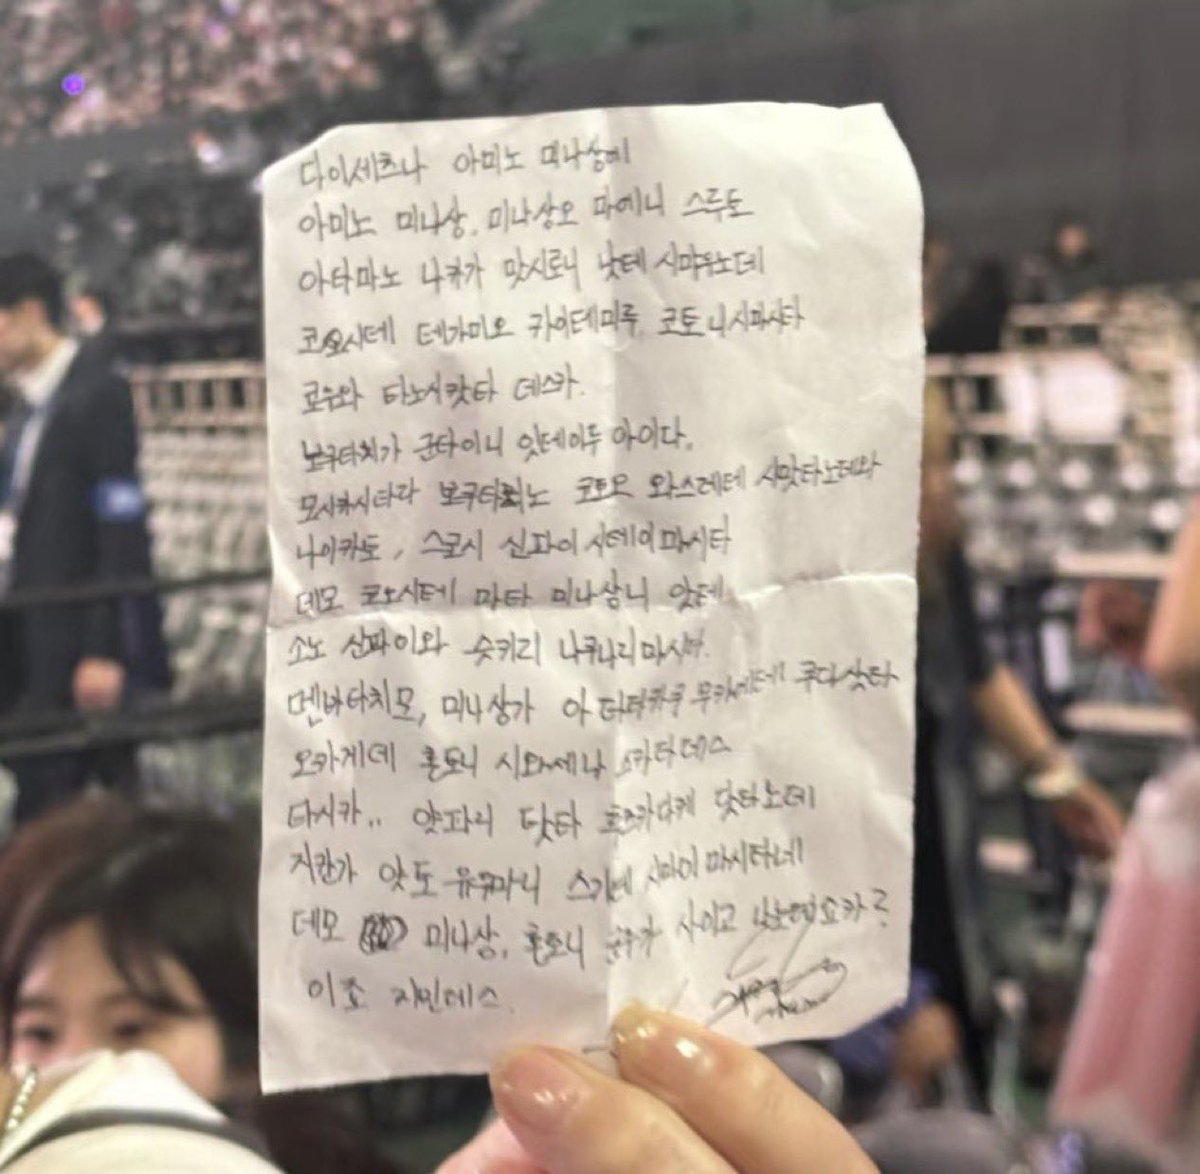 다이세츠나 아미노 미나상에
아미노 미나상, 미나상오 마에니 스루토
아타마노 나카가 맛시로니 낫테 시마우노데
코오시테 테가미오 카이테미루 코토니시마시타
쿄우와 타노시캇타 데스카.
보쿠타치가 군타이니 잇테이루 아이다,
모시카시타라 보쿠타치노 코토오 와스레테 시맛타노데와
나이카토, 스코시 신파이 시테이마시타
데모 코오시테 마타 미나상니 앗테
소노 신파이와 슷키리 나쿠나리마시타.
멘바타치모, 미나상가 아타타카쿠 무카에테 쿠다삿타
오카게데 혼토니 시와세나 스가타데스
타시카.. 얏파리 닷타 하즈다케 닷타노데
지칸가 앗토 유우마니 스기테 시마이마시타네
데모 미나상, 혼토니 사이고 난데쇼카?
이죠 지민데스.